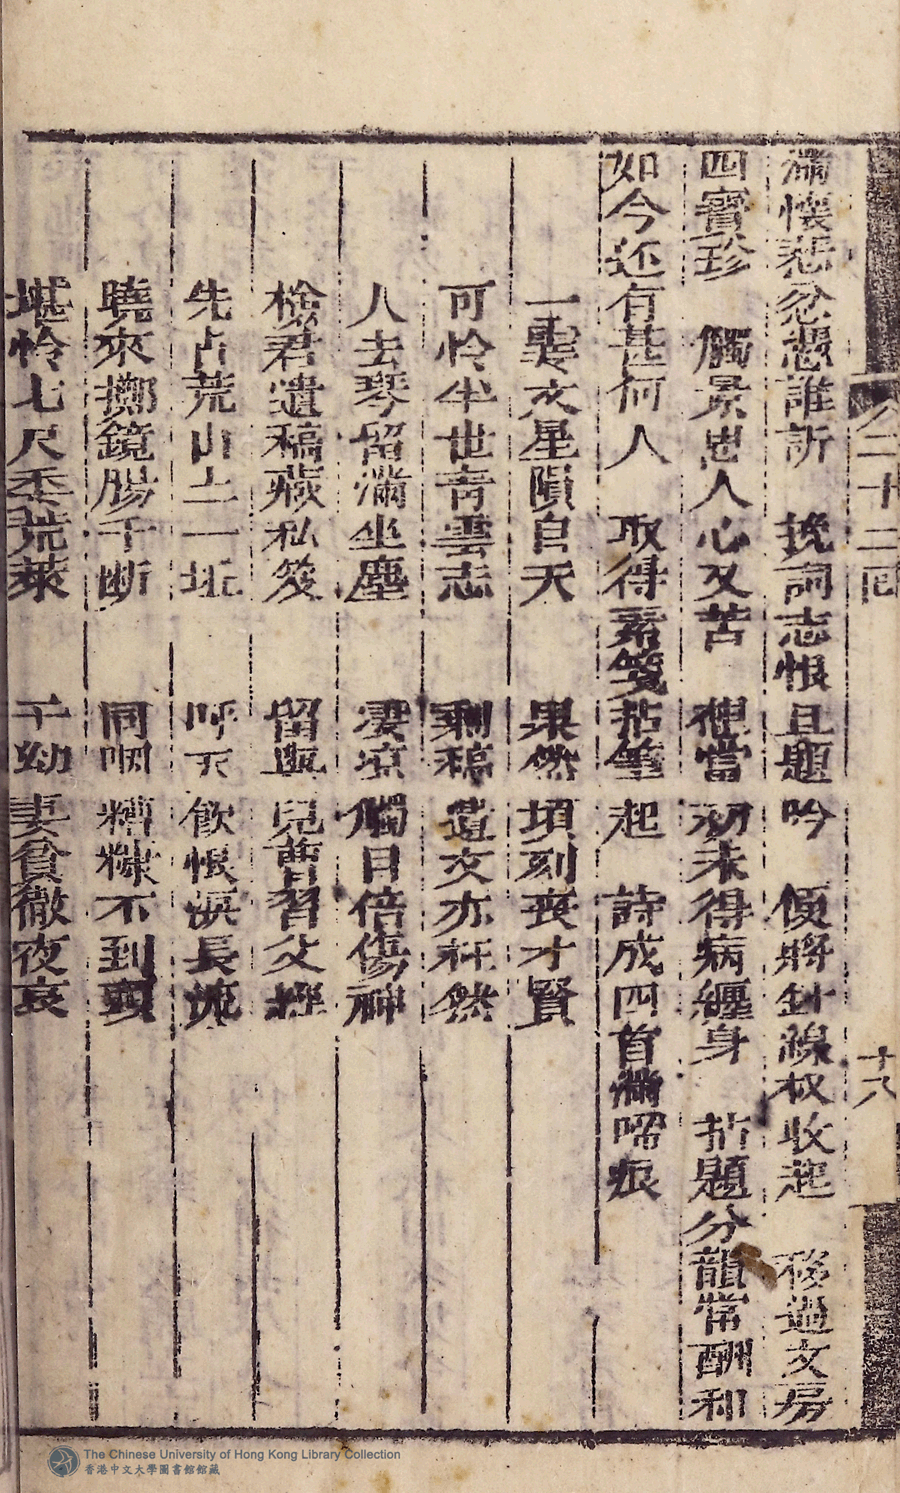 二十二回
十八
滿懷悲忿憑誰訴 挽詞志恨且題吟 便將針線权收起 移過文房
四寶珍 觸景思人心又苦 想當初未得病纏身 拈題分韻常酬和
如今还有甚何人 取得素箋拈筆起 詩成四首滿啼痕
一靈文星隕自天 果然頃刻丧才賢
可怜半世青雲志 剩稿遺文亦枉然
人去琴留滿坐塵 凄凉觸目倍傷神
檢君遺稿藏私笈 留與兒曹習父經
先占荒山土一坵 呼天飲恨淚長流
曉來擲鏡腸千断 同咽糟糠不到頭
堪怜七尺委荒萊 子幼妻貧徹夜哀
The Chinese University of Hong Kong Library Collection
香港中文大學圖書館館藏